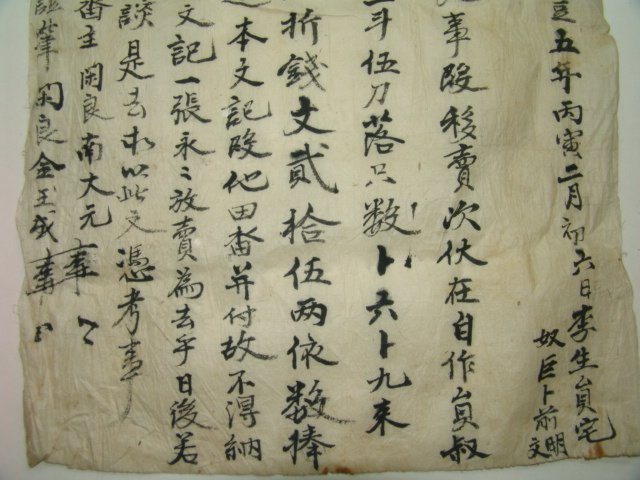 五年丙寅二月初六日李生員宅
奴巨卜前明文
事段移賣次伏在自作員叔
斗伍刀落只数卜六卜九束
折錢文貳拾伍兩依數捧
本文記段他田畓并付故不淂納
文記一張永〻放賣為去乎日後若
談是去小以此文憑考事
畓主閑良南大元
筆閑良金王成